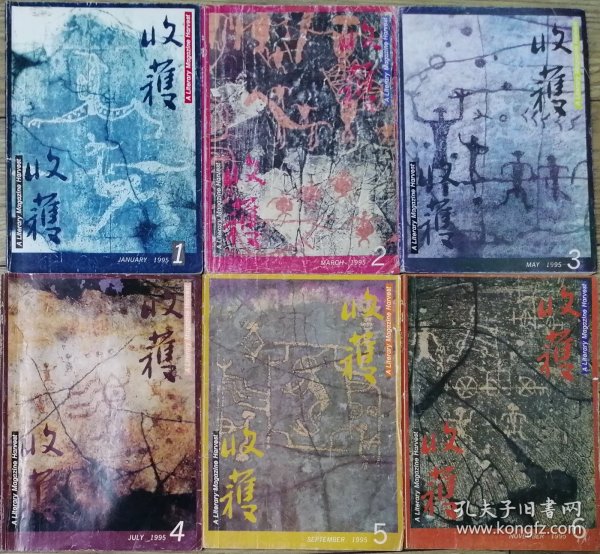 收穫
A Literary Magazine Harvest
收穫
A Literary Magazine Harvest
JANUARY 1995 1
收穫
A Literary Magazine Harvest
收穫
A Literary Magazine Harvest
MARCH 1995 2
收穫
收穫
A Literary Magazine Harvest
MAY 1995 3
收穫
A Literary Magazine Harvest
收穫
A Literary Magazine Harvest
JULY 1995 4
收穫
A Literary Magazine Harvest
收穫
A Literary Magazine Harvest
SEPTEMBER 1995 5
收穫
A Literary Magazine Harvest
收穫
A Literary Magazine Harvest
NOVEMBER 1995 6
孔夫子旧书网
www.kongfz.com